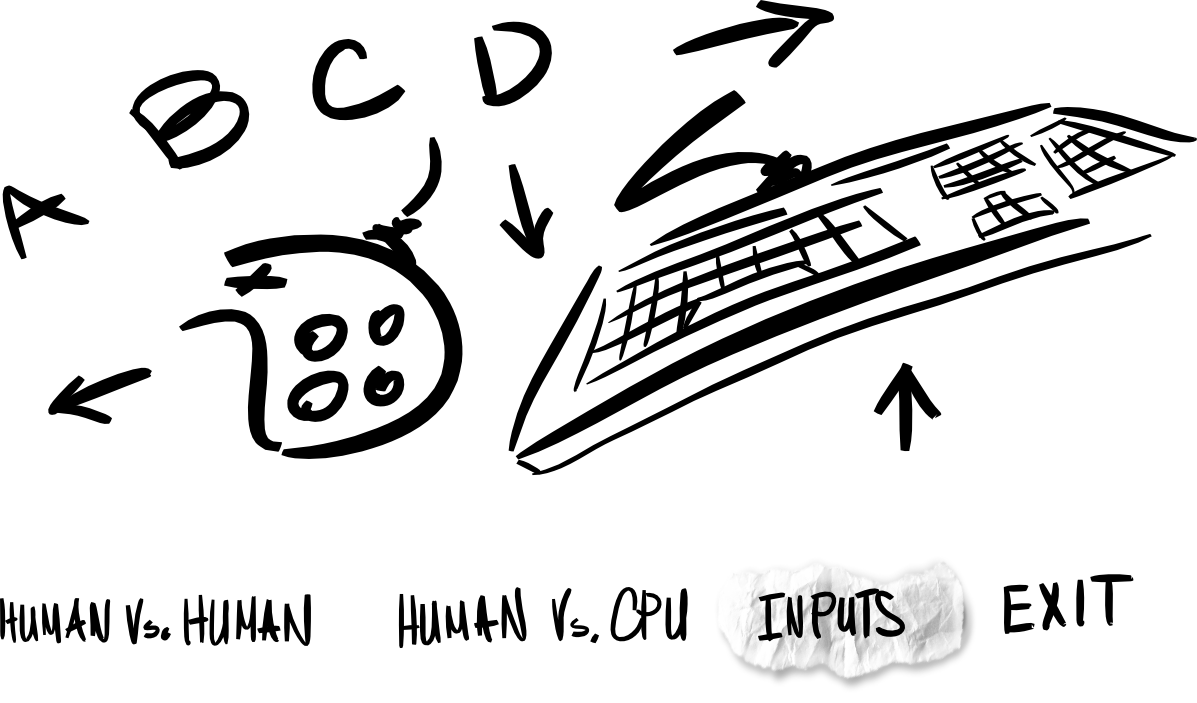 A B C D
HUMAN Vs. HUMAN HUMAN Vs. CPU INPUTS EXIT